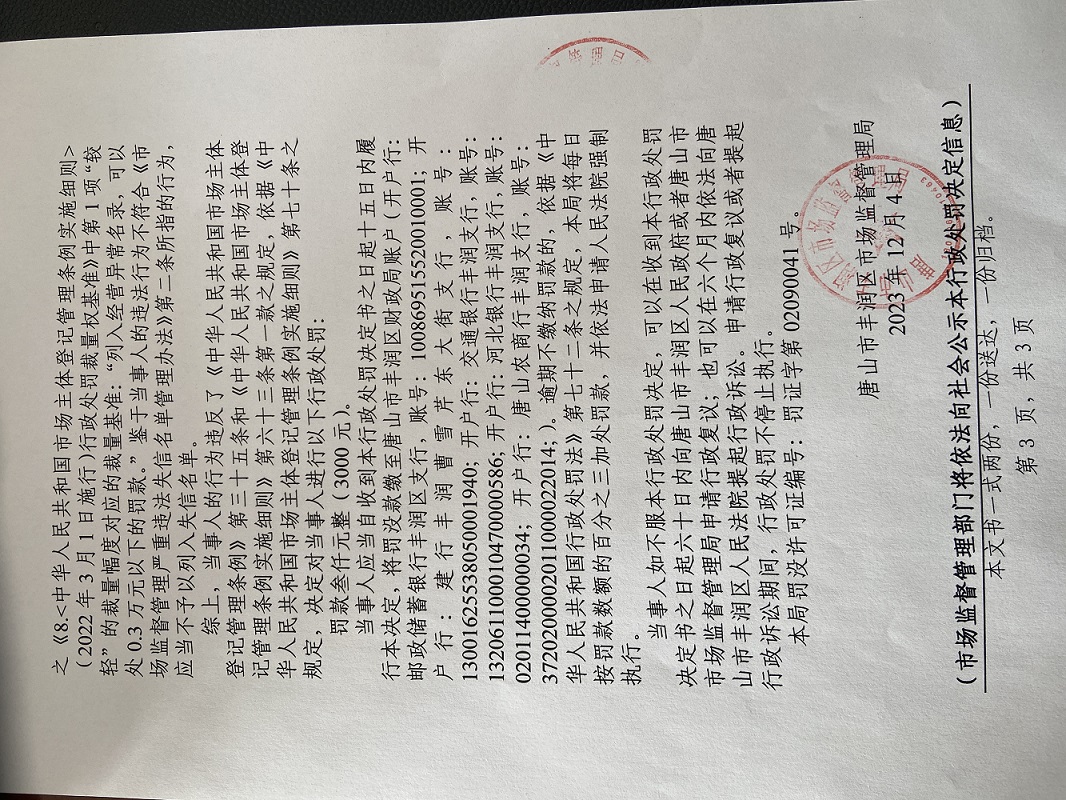 之《8.<中华人民共和国市场主体登记管理条例实施细则>
(2022 年 3 月 1 日施行)行政处罚裁量权基准》中第 1 项“较
轻”的裁量幅度对应的裁量基准：“列入经营异常名录，可以
处 0.3 万元以下的罚款。”鉴于当事人的违法行为不符合《市
场监督管理严重违法失信名单管理办法》第二条所指的行为，
应当不予以列入失信名单。
综上，当事人的行为违反了《中华人民共和国市场主体
登记管理条例》第三十五条和《中华人民共和国市场主体登
记管理条例实施细则》第六十三条第一款之规定，依据《中
华人民共和国市场主体登记管理条例实施细则》第七十条之
规定，决定对当事人进行以下行政处罚：
罚款叁仟元整（3000 元）。
当事人应当自收到本行政处罚决定书之日起十五日内履
行本决定，将罚没款缴至唐山市丰润区财政局账户（开户行：
邮政储蓄银行丰润区支行，账号：100869515520010001；开
户行：建行丰润曹雪芹东大街支行，账号：
13001625538050001940；开户行：交通银行丰润支行，账号：
132061100010470000586；开户行：河北银行丰润支行，账号：
02011400000034；开户行：唐山农商行丰润支行，账号：
3720200002011000022014；）。逾期不缴纳罚款的，依据《中
华人民共和国行政处罚法》第七十二条之规定，本局将每日
按罚款数额的百分之三加处罚款，并依法申请人民法院强制
执行。
当事人如不服本行政处罚决定，可以在收到本行政处罚
决定书之日起六十日内向唐山市丰润区人民政府或者唐山市
市场监督管理局申请行政复议；也可以在六个月内依法向唐
山市丰润区人民法院提起行政诉讼。申请行政复议或者提起
行政诉讼期间，行政处罚不停止执行。
本局罚没许可证编号：罚证字第 02090041 号。
唐山市丰润区市场监督管理局
2023年 12月 4日
（市场监督管理部门将依法向社会公示本行政处罚决定信息）
本文书一式两份，一份送达，一份归档。
第 3 页，共 3 页